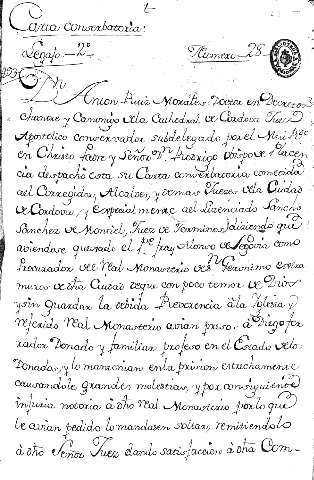 Carta conserbatoria:
Legajo - 2º
Numero - 28
Dn Anton Ruiz Morales, Doctor en Decretos
chantre y Canonigo de la Cathedral de Cordova Juez
Apostolico conservador subdelegado por el Mui Rdo
en Christo Padre y Señor Dn Rodrigo Obispo de Placen
cia despacho esta su Carta conserbatoria cometida
al Corregidor, Alcaldes, y demas Juezes de la Ciudad
de Cordova, y especialmente al Lizenciado Sancho
Sanchez de Montiel, Juez de Terminos, diziendo que
aviendose quexado el Pe fray Alonso de Segovia como
Procurador del Real Monasterio de Sn Geronimo extra
muros de dha Ciudad de que con poco temor de Dios
y sin Guardar la debida Reverencia a la Iglesia y
referido Real Monasterio avian preso a Diego for
zador Donado y familiar profeso en el Estado de los
Donados, y lo mantenian en la prision estrechamente
causandole grandes molestias, y por consiguiente
injuria notoria a dho Real Monasterio por lo que
le avian pedido lo mandasen soltar, remitiendolo
a dho Señor Juez dando satisfaccion a dha Com-